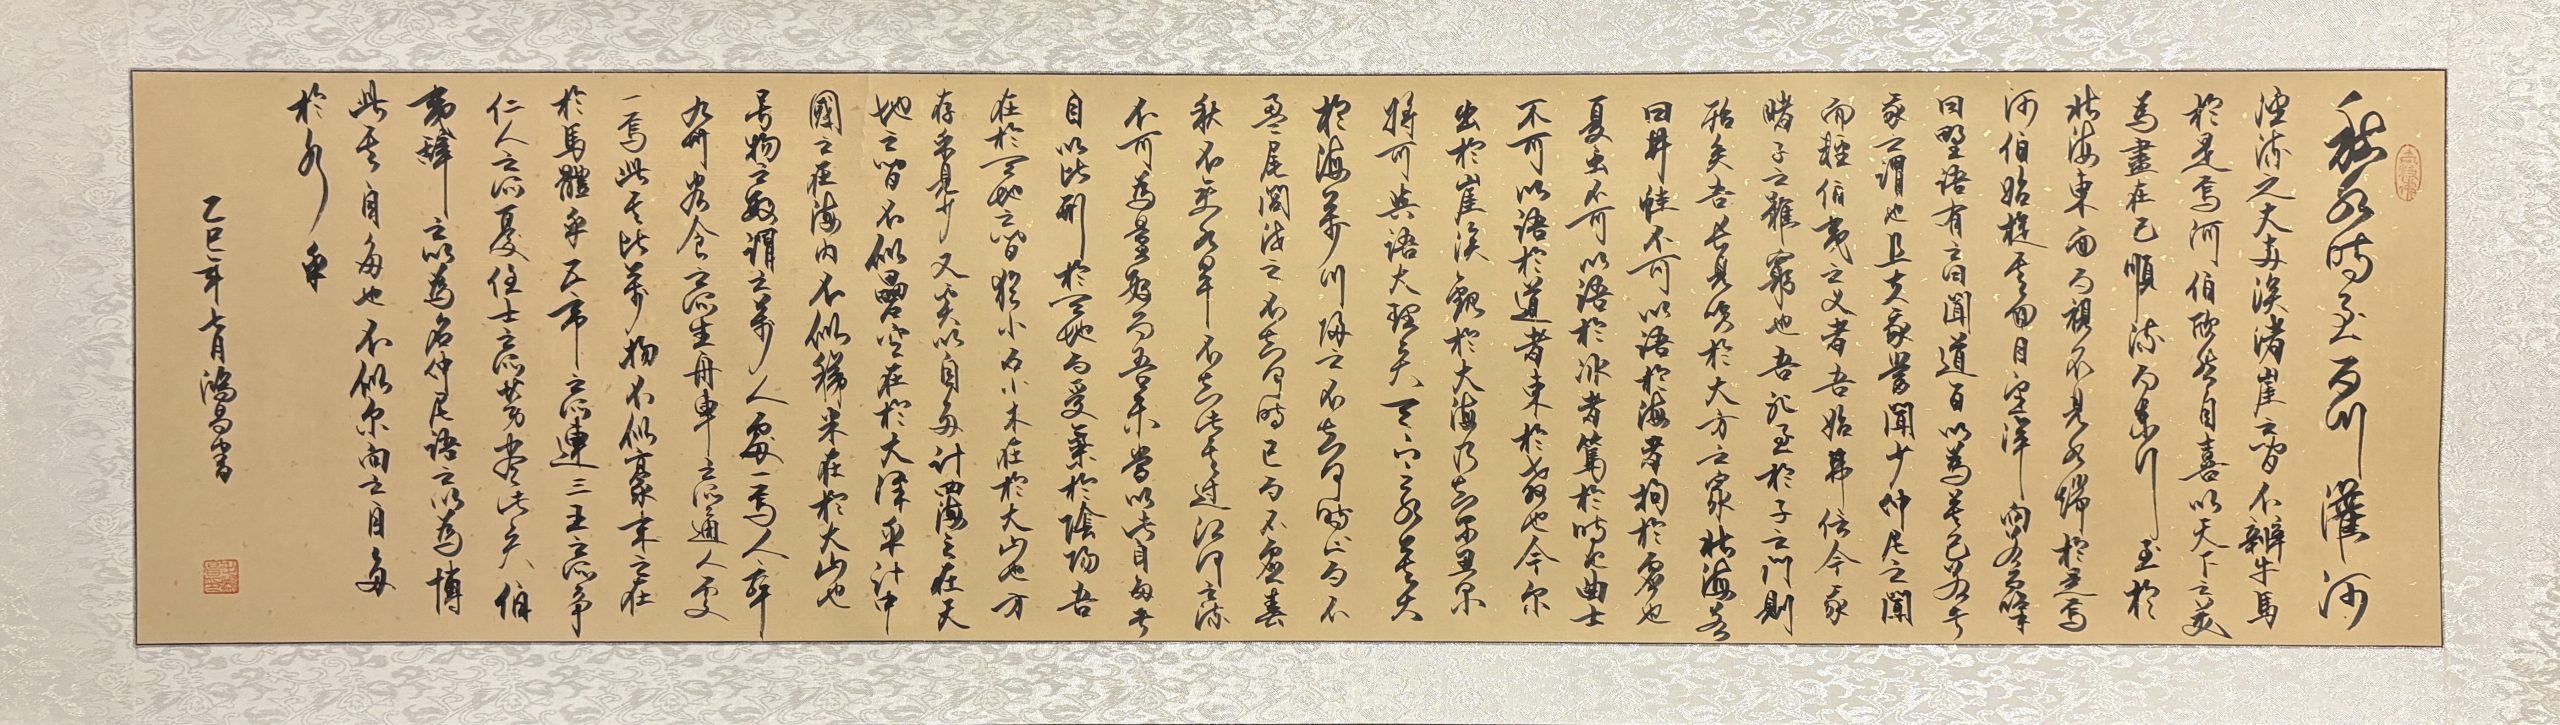 秋水時至百川灌河
涇流之大兩涘渚崖之間不辨牛馬
於是焉河伯欣然自喜以天下之美
為盡在己順流而東行至於
北海東面而視不見水端於是焉
河伯始旋其面目望洋向若而嘆
曰野語有之曰聞道百以為莫己若者
我之謂也且夫我嘗聞少仲尼之聞
而輕伯夷之義者吾始弗信今我
睹子之難窮也吾非至於子之門則
殆矣吾長見笑於大方之家北海若
曰井蛙不可以語於海者拘於虛也
夏蟲不可以語於冰者篤於時也曲士
不可以語於道者束於教也今爾
出於崖涘觀於大海乃知爾醜爾
將可與語大理矣天下之水莫大
於海萬川歸之不知何時止而不
盈尾閭泄之不知何時已而不虛春
秋不變水旱不知此其過江河之流
不可為量數而吾未嘗以此自多者
自以比形於天地而受氣於陰陽吾
在於天地之間猶小石小木在於大山也方
存乎見少又奚以自多計四海之在天
地之間不似礨空在於大澤乎計中
國之在海內不似稊米在於大山也
號物之數謂之萬人處一焉人卒
九州穀食之所生舟車之所通人處
一焉此其比萬物不似豪末之在
於馬體乎五帝之所連三王之所爭
仁人之所憂任士之所勞盡此矣伯
夷辭之以為名仲尼語之以為博
此其自多也不似爾向之自多
於水乎
乙巳年七月鴻昌書